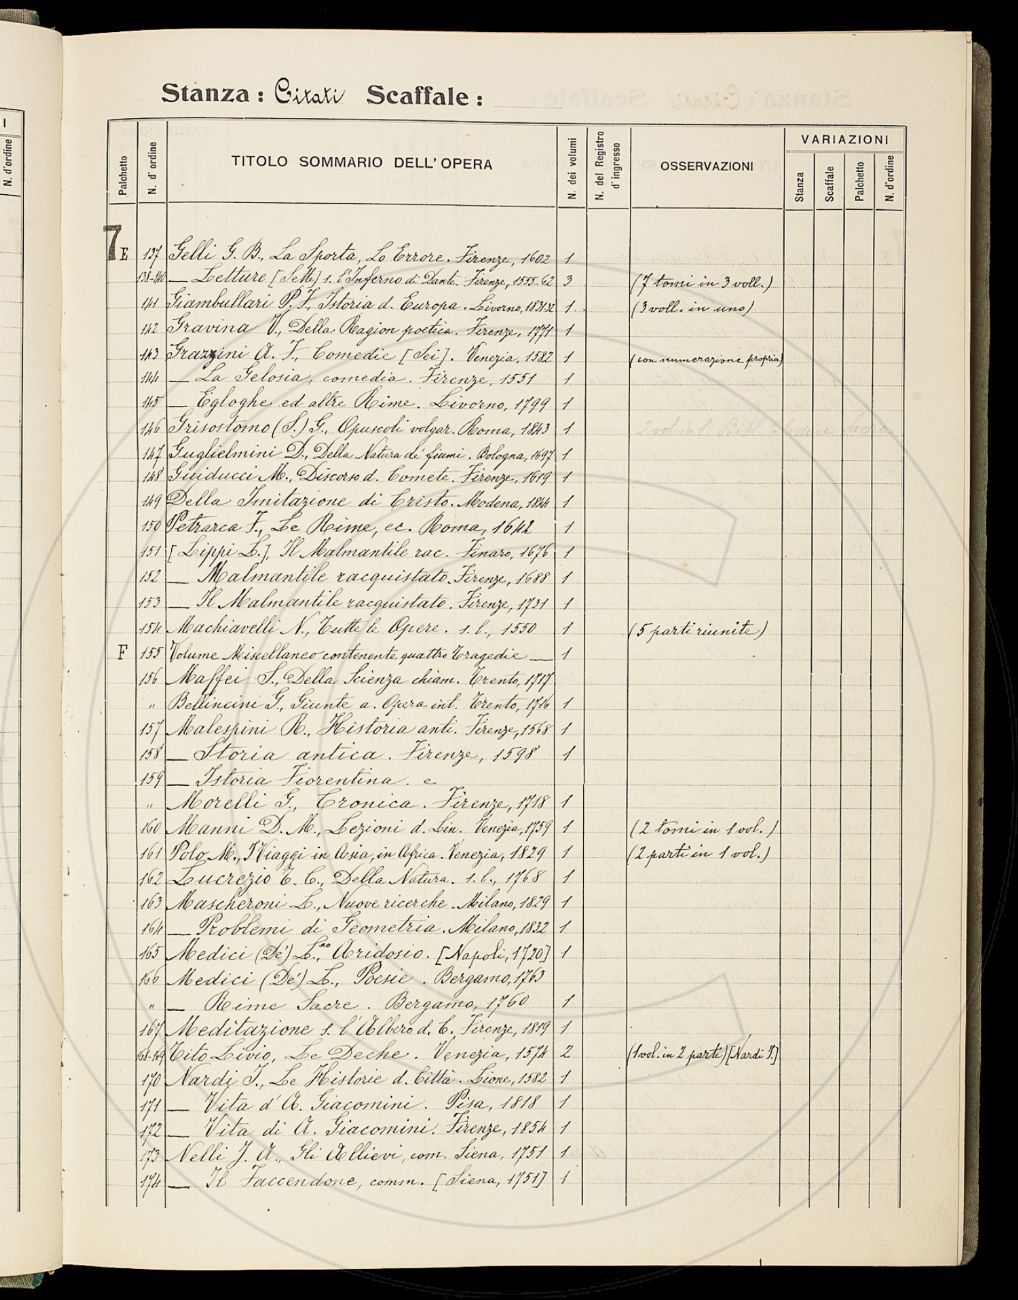 Stanza: Citati Scaffale:
Palchetto N. d'ordine TITOLO SOMMARIO DELL'OPERA N. dei volumi N. del Registro d'ingresso OSSERVAZIONI VARIAZIONI Stanza Scaffale Palchetto N. d'ordine
7E 137 Gelli G. B., La Sporta, Lo Errore. Firenze, 1602 1
138-140 — Letture [Sette] s. l'Inferno di Dante. Firenze, 1555-62 3 (7 tomi in 3 voll.)
141 Giambullari P. F., Istoria d. Europa. Livorno, 1831-32 1 (3 voll. in uno)
142 Gravina V., Della Ragion poetica. Firenze, 1771 1
143 Grazzini A. F., Comedie [Sei]. Venezia, 1582 1 (con numerazione propria)
144 — La Gelosia, comedia. Firenze, 1551 1
145 — Egloghe ed altre Rime. Livorno, 1799 1
146 Grisostomo (S.) G., Opuscoli volgar. Roma, 1843 1
147 Guglielmini D., Della Natura de' fiumi. Bologna, 1697 1
148 Guiducci M., Discorso d. Comete. Firenze, 1619 1
149 Della Imitazione di Cristo. Modena, 1844 1
150 Petrarca F., Le Rime, ec. Roma, 1642 1
151 [Lippi L.], Il Malmantile rac. Finaro, 1676 1
152 — Malmantile racquistato. Firenze, 1688 1
153 — Il Malmantile racquistato. Firenze, 1731 1
154 Machiavelli N., Tutte le Opere. s. l., 1550 1 (5 parti riunite)
F 155 Volume Miscellaneo contenente quattro Tragedie — 1
156 Maffei S., Della Scienza chiam. Trento, 1717
" Bellincini G., Giunte a. Opera int. Trento, 1716 1
157 Malespini R., Historia anti. Firenze, 1568 1
158 — Storia antica. Firenze, 1598 1
159 — Istoria Fiorentina. e
" Morelli G., Cronica. Firenze, 1718 1
160 Manni D. M., Lezioni d. Lin. Venezia, 1759 1 (2 tomi in 1 vol.)
161 Polo M., I Viaggi in Asia, in Africa. Venezia, 1829 1 (2 parti in 1 vol.)
162 Lucrezio T. C., Della Natura. s. l., 1768 1
163 Mascheroni L., Nuove ricerche. Milano, 1829 1
164 — Problemi di Geometria. Milano, 1832 1
165 Medici (De') L.no, Aridosio. [Napoli, 1720] 1
166 Medici (De') L., Poesie. Bergamo, 1763
" — Rime Sacre. Bergamo, 1760 1
167 Meditazione s. l'Albero d. C. Firenze, 1819 1
168-169 Tito Livio, Le Deche. Venezia, 1574 2 (1 vol. in 2 parti) [Nardi J.]
170 Nardi J., Le Historie d. Città. Lione, 1582 1
171 — Vita d'A. Giacomini. Pisa, 1818 1
172 — Vita di A. Giacomini. Firenze, 1854 1
173 Nelli J. A., Gli Allievi, com. Siena, 1751 1
174 — Il Faccendone, comm. [Siena, 1751] 1